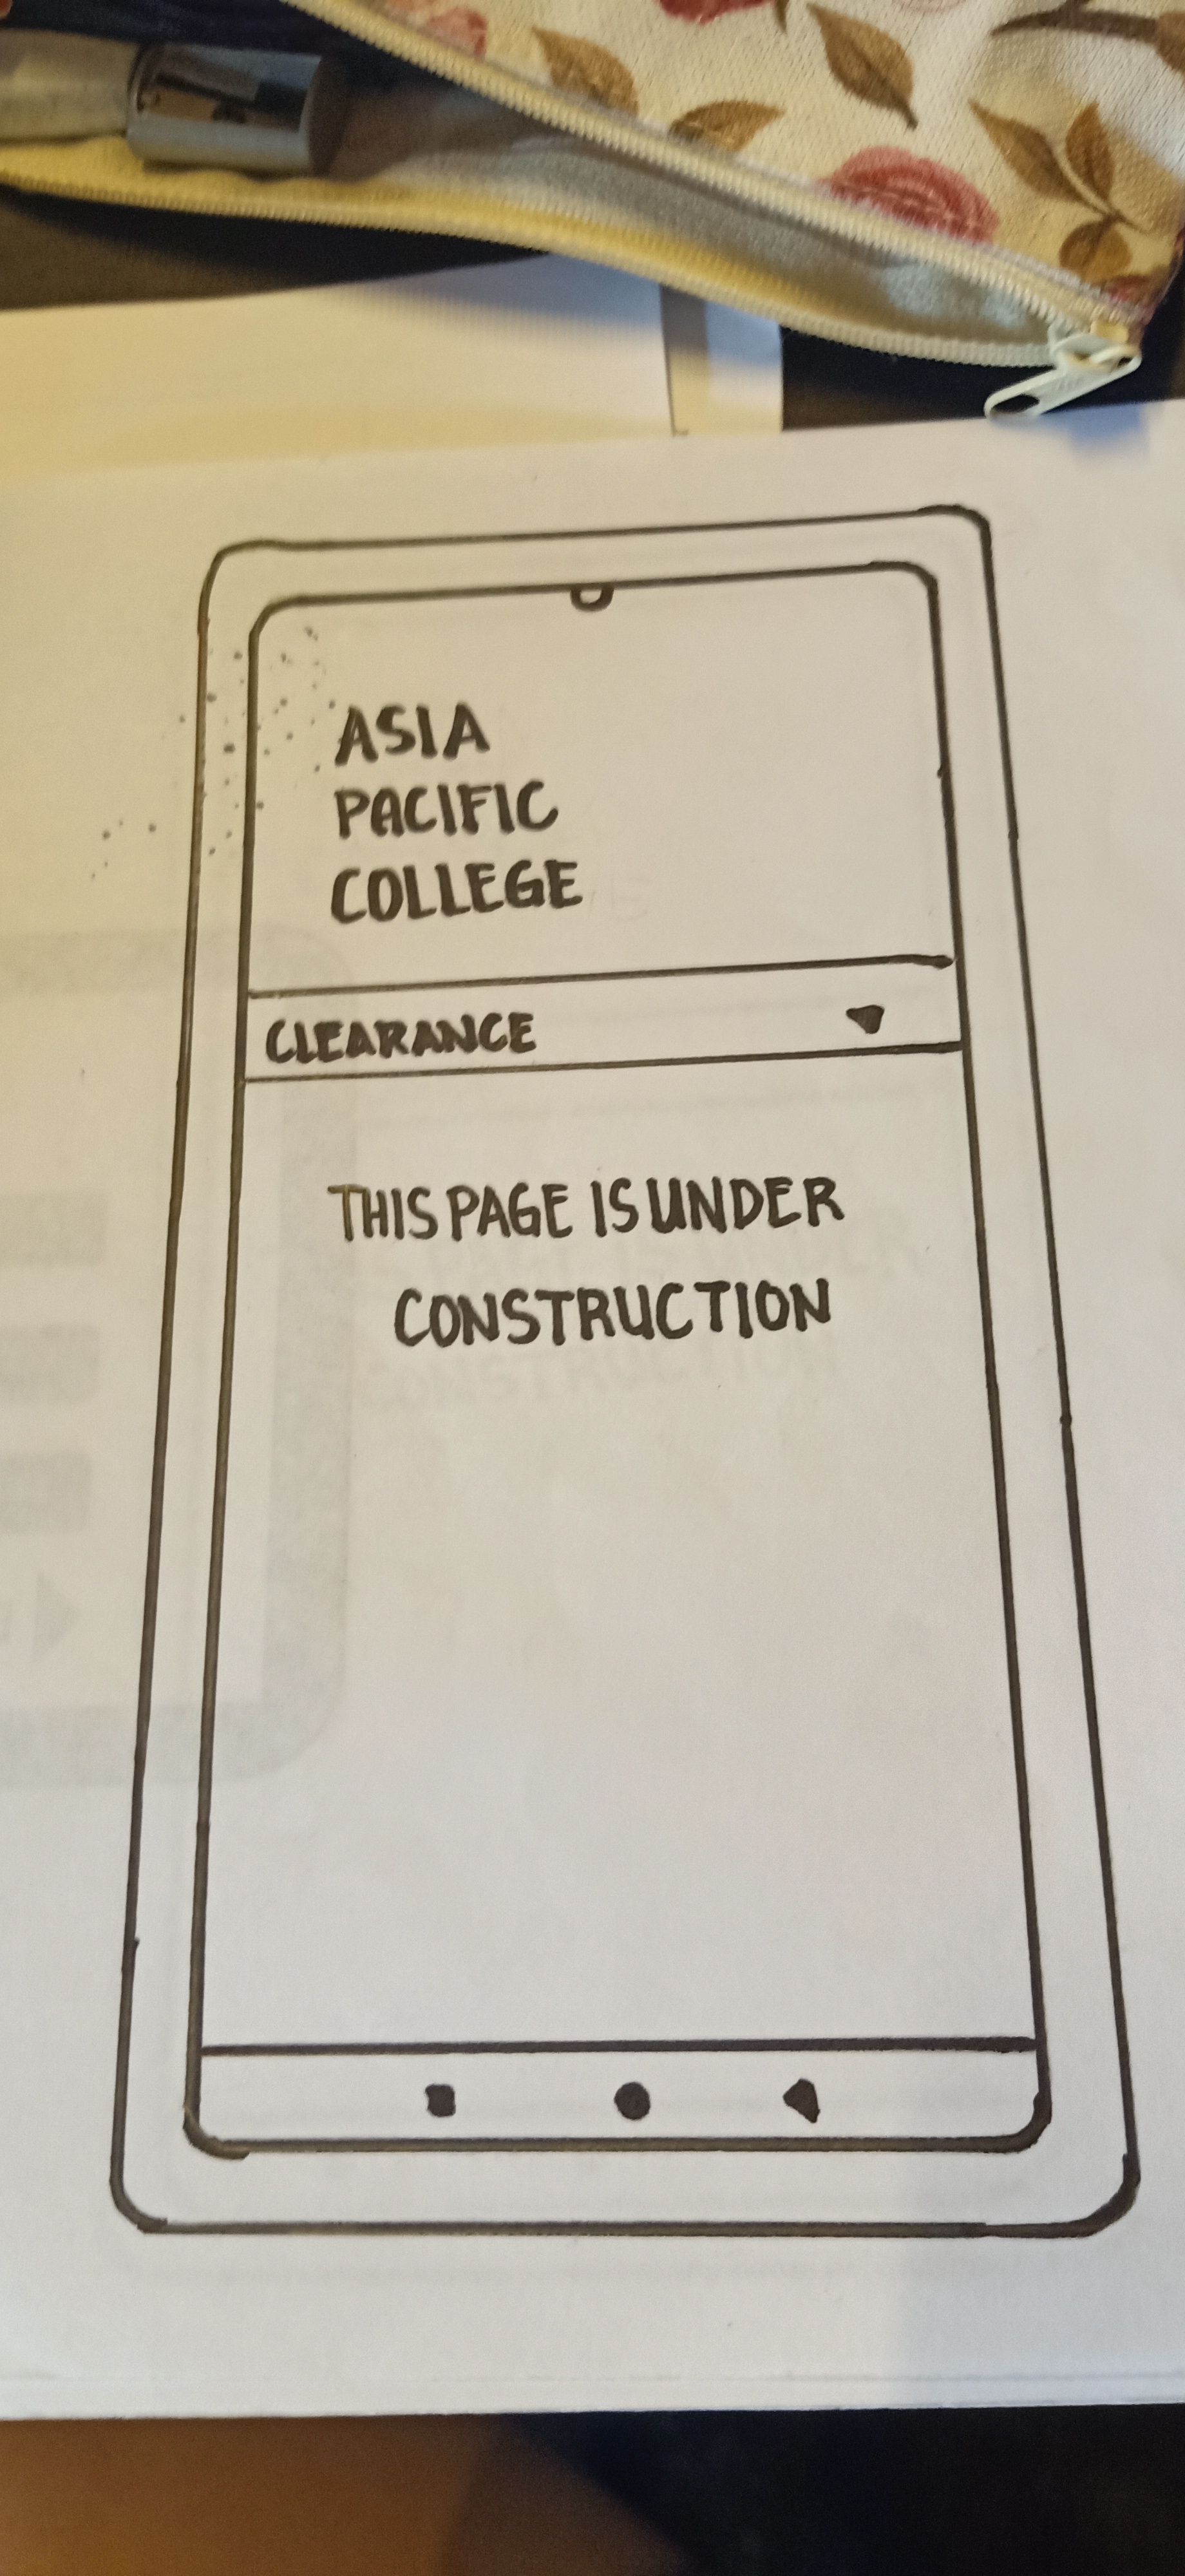 ASIA
PACIFIC
COLLEGE
CLEARANCE
THIS PAGE IS UNDER
CONSTRUCTION